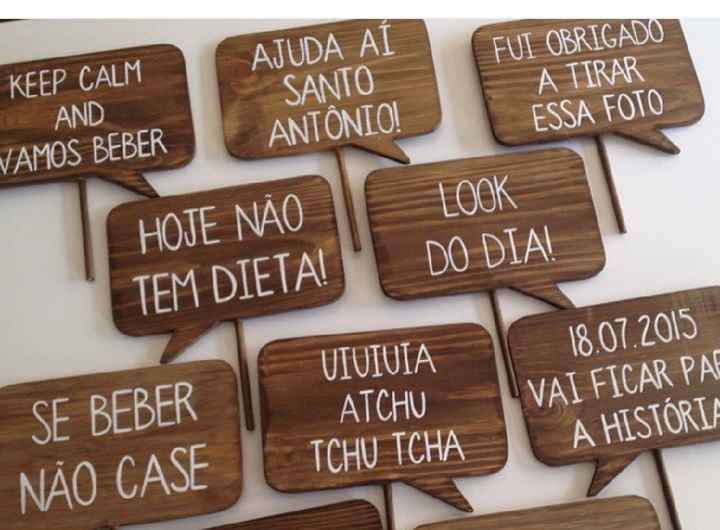 KEEP CALM
AND
VAMOS BEBER
AJUDA AÍ
SANTO
ANTÔNIO!
FUI OBRIGADO
A TIRAR
ESSA FOTO
HOJE NÃO
TEM DIETA!
LOOK
DO DIA!
SE BEBER
NÃO CASE
UIUIUIA
ATCHU
TCHU TCHA
18.07.2015
VAI FICAR
A HISTÓRIA